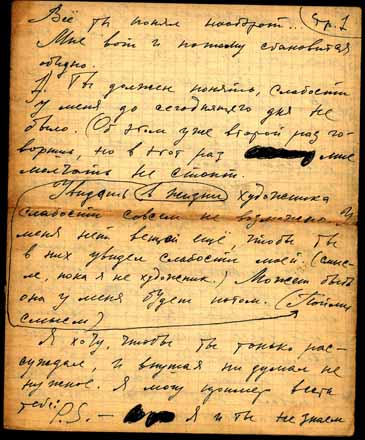 Всё ты понял наоборот... Стр. 1
Мне вот и потому становится
обидно.
1. Ты должен понять, слабости
у меня до сегодняшнего дня не
было. (Об этом уже второй раз го-
воришь, но в этот раз мне
молчать не стоит.
Увидеть в жизни художника
слабости совсем не возможно. У
меня нет вещей ещё, чтобы ты
в них увидел слабости моей. (смы-
сле, пока я не художник.) Может быть
она у меня будет потом. (Пойми
смысл)
Я хочу, чтобы ты только рас-
суждал, и внушая ни думал не
нужное. Я могу пример вести
тебе. P.S. – Я и ты не знаем